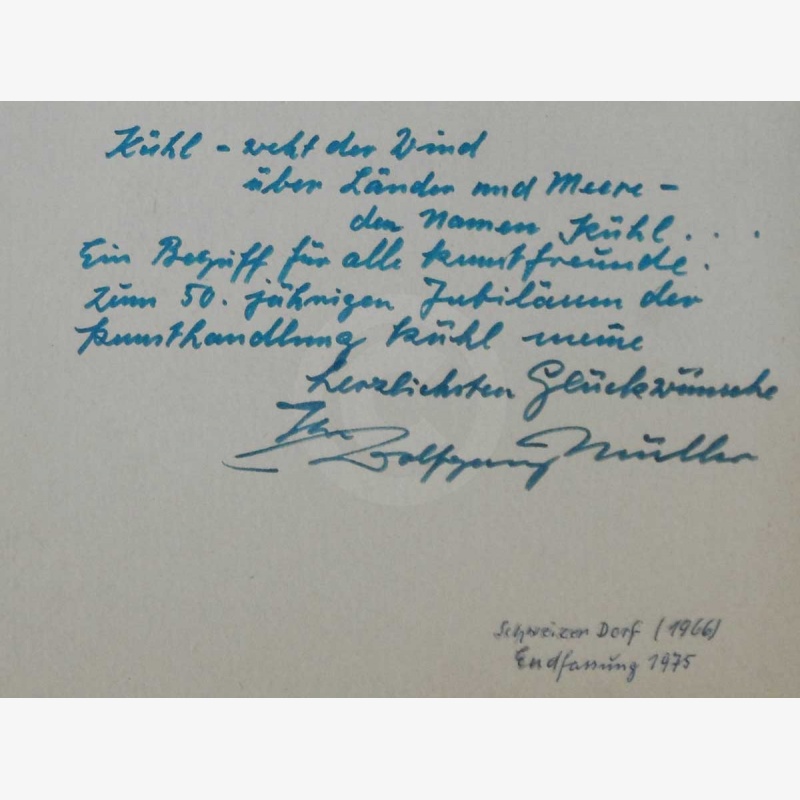 Kühl – weht der Wind
über Länder und Meere –
den Namen Kühl...
Ein Begriff für alle Kunstfreunde.
Zum 50. jährigen Jubiläum der
Kunsthandlung Kühl meine
herzlichsten Glückwünsche
Ihr Wolfgang Müller
Schweizer Dorf (1966)
Endfassung 1975